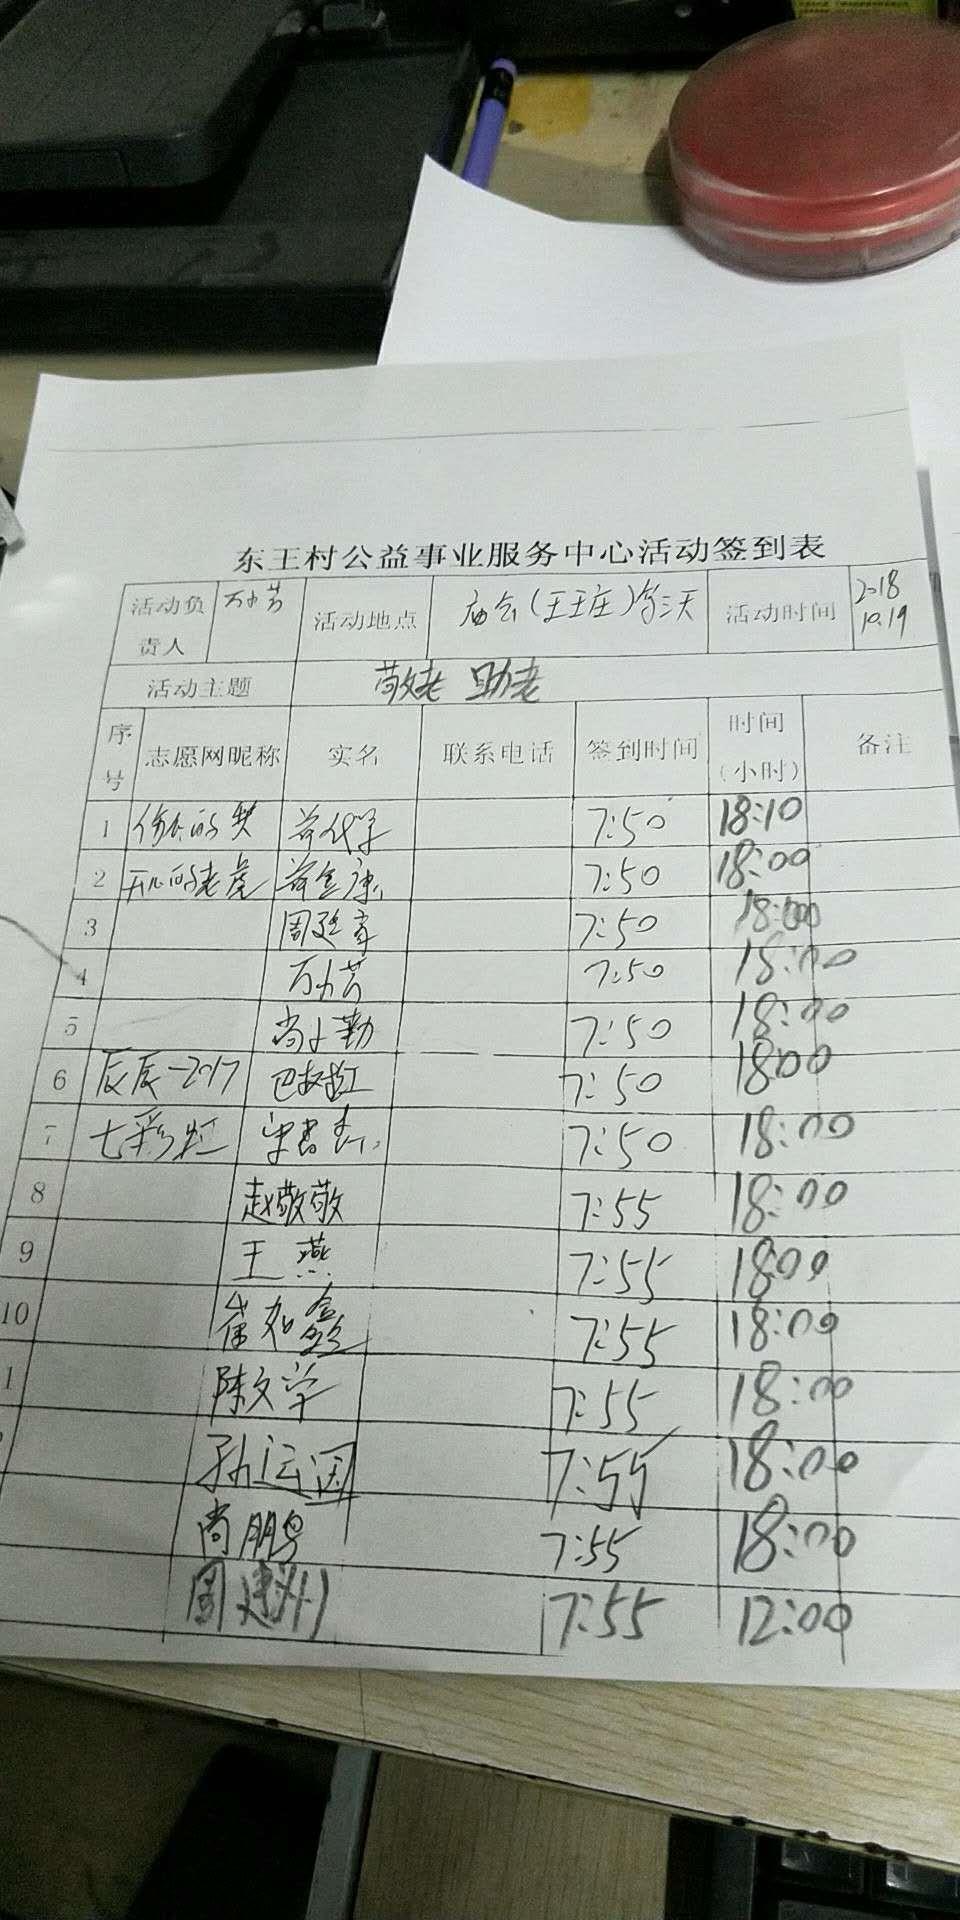 东王村公益事业服务中心活动签到表
活动负责人 万小芳 活动地点 庙会(王王庄)第三天 活动时间 2018 10.19
活动主题 敬老 助老
序号 志愿网昵称 实名 联系电话 签到时间 时间(小时) 备注
1 7:50 18:10
2 开心的老虎 7:50 18:00
3 7:50 18:00
4 万小芳 7:50 18:00
5 尚小勤 7:50 18:00
6 辰辰-2017 巴故红 7:50 1800
7 七彩虹 7:50 18:00
8 赵敬敬 7:55 18:00
9 王燕 7:55 1800
10 崔如鑫 7:55 18:00
1 陈文学 7:55 18:00
孙运国 7:55 18:00
尚朋号 7:55 18:00
周建州 7:55 12:00